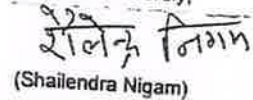 शैलेन्द्र निगम
(Shailendra Nigam)